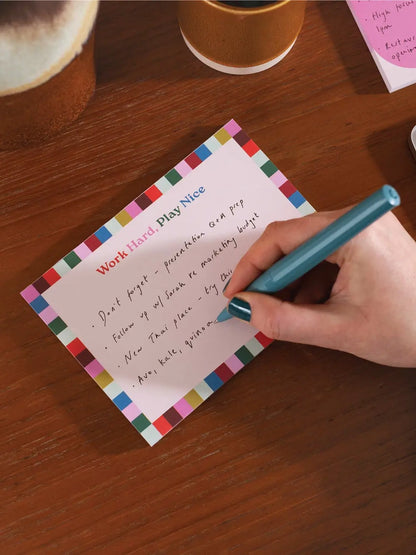 Work Hard, Play Nice
· Don't forget - presentation Q&A prep
· Follow up w/ Sarah re marketing budget
· New Thai place - try this
· Avo, kale, quinoa
High
1pm